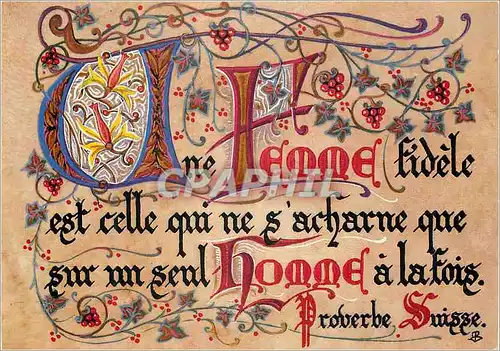 Une Femme fidèle
CPAPHIL
est celle qui ne s'acharne que
sur un seul homme à la fois.
Proverbe Suisse.